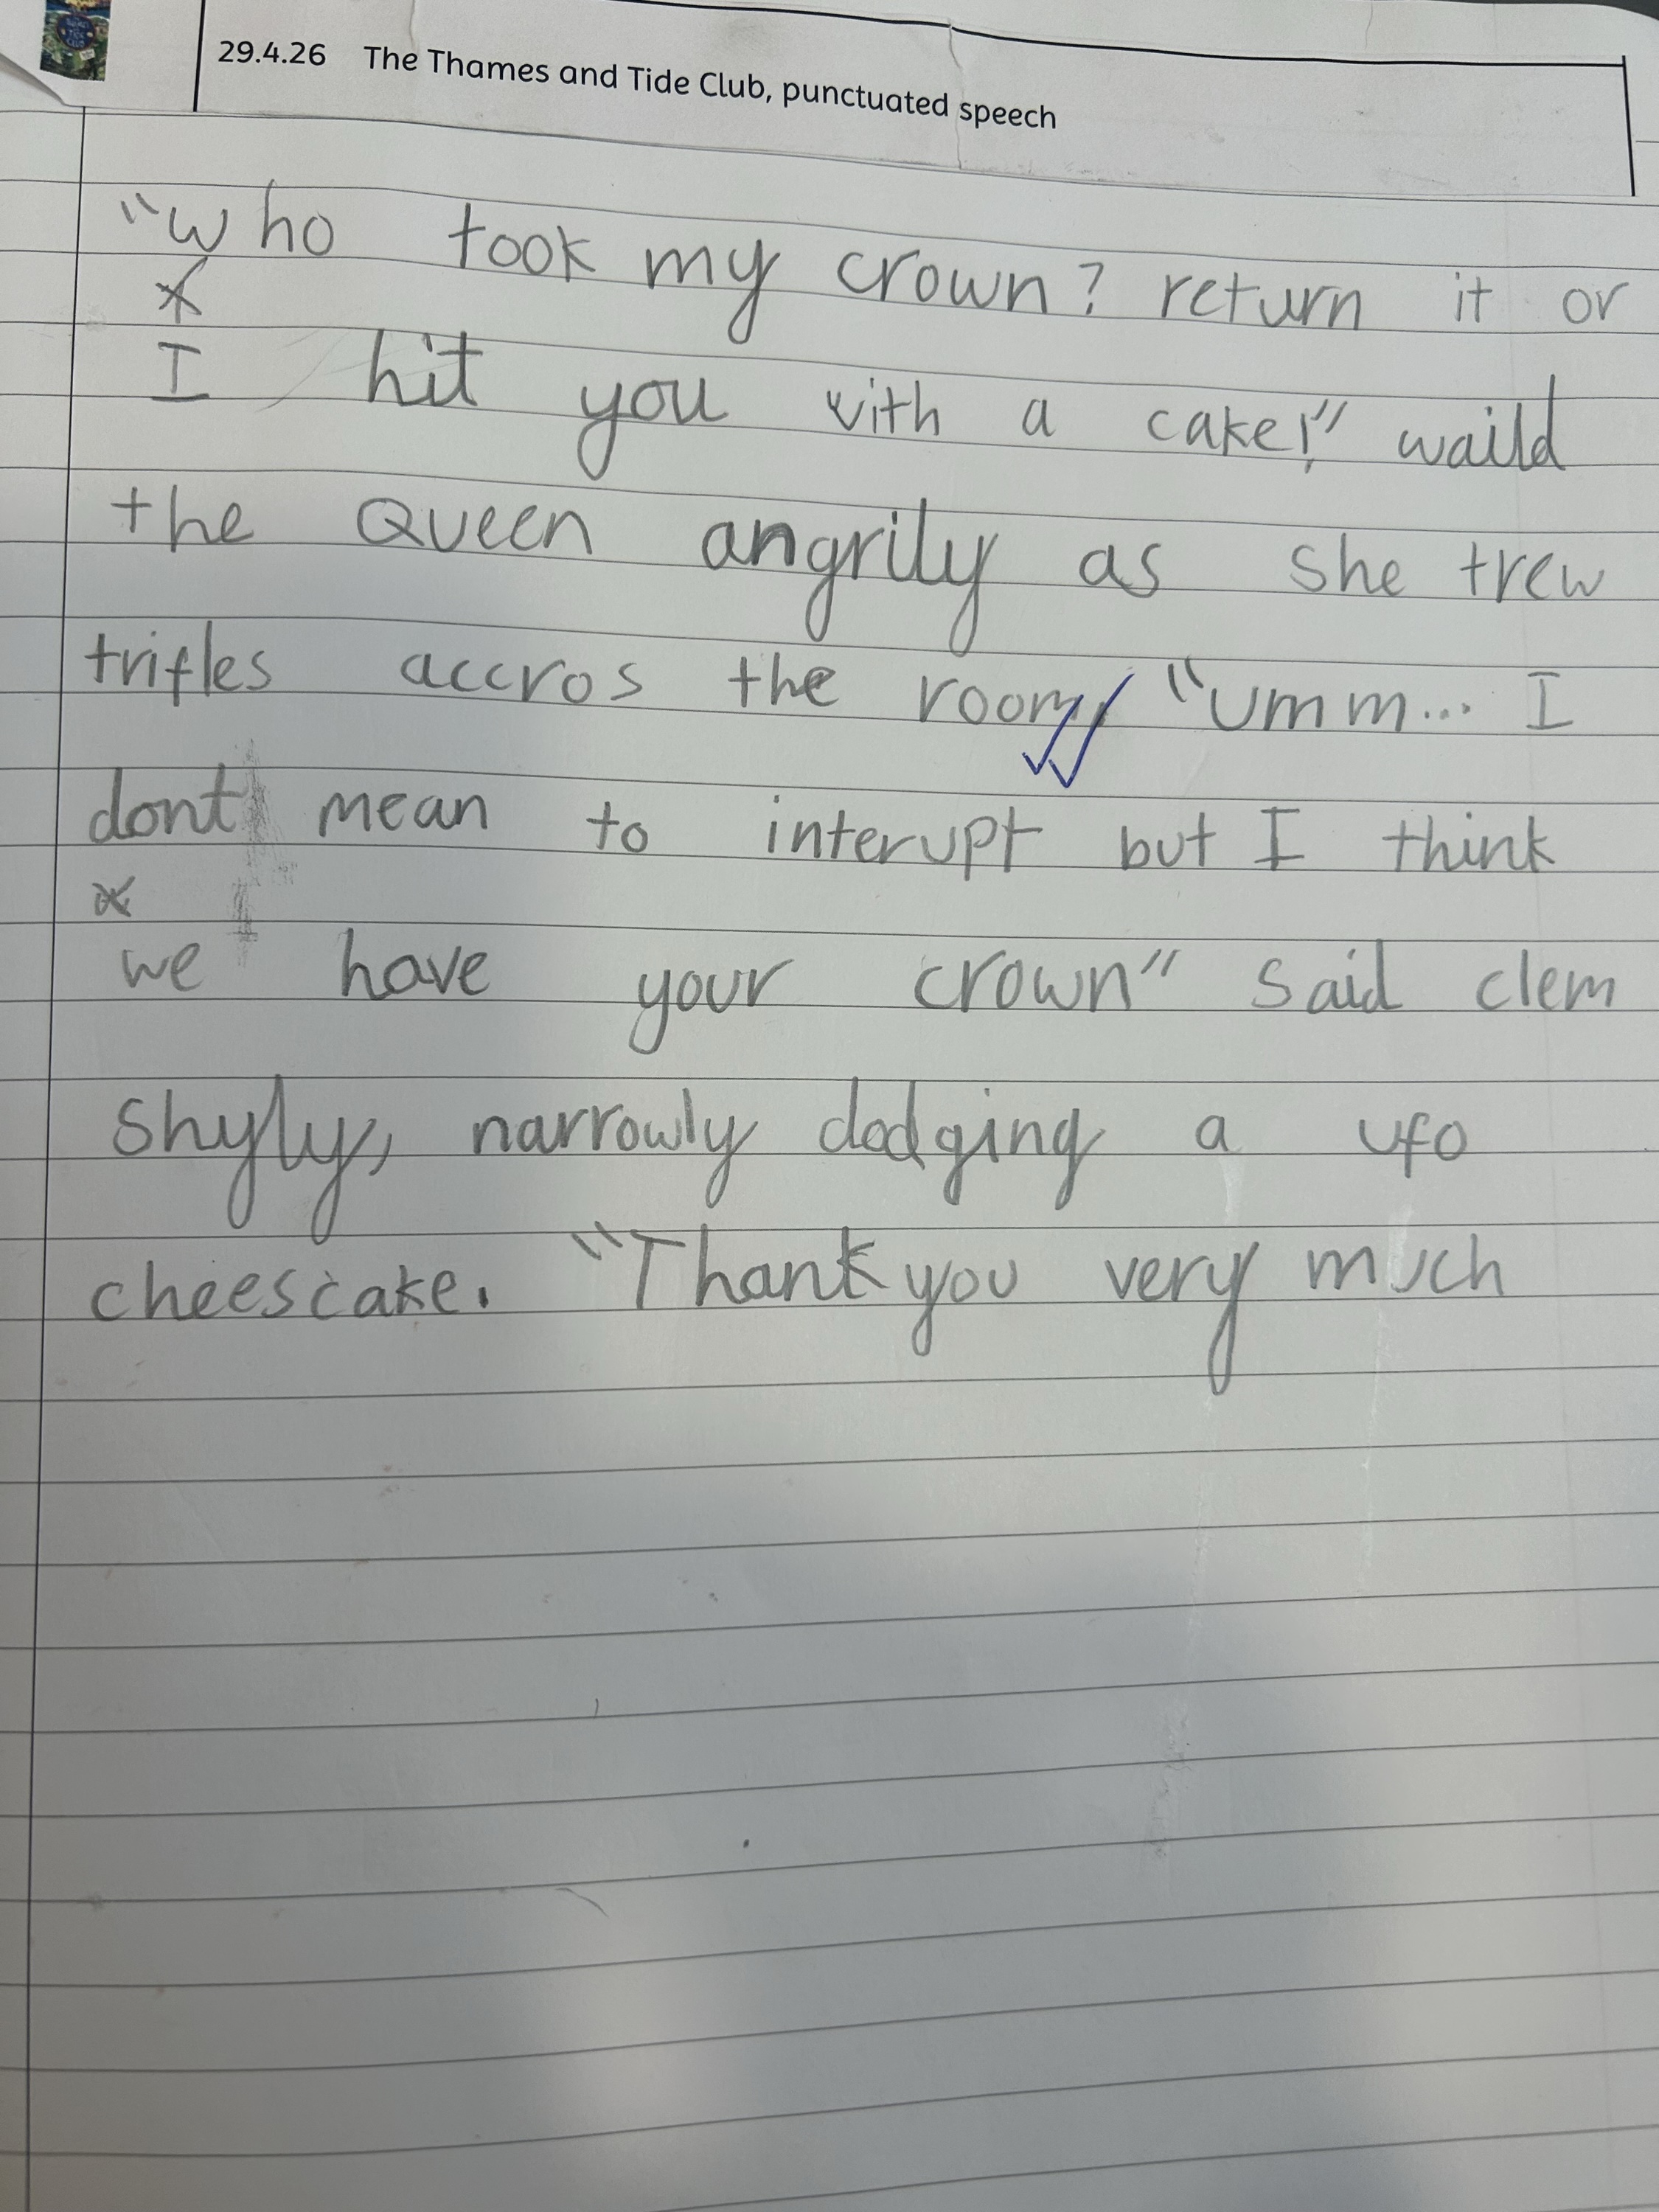 29.4.26 The Thames and Tide Club, punctuated speech
"who took my crown? return it or
I hit you with a cake!," waild
the Queen angrily as she trew
trifles accros the room, "umm... I
dont mean to interupt but I think
we have your crown" said clem
shyly, narrowly dodging a ufo
cheescake. "Thank you very much